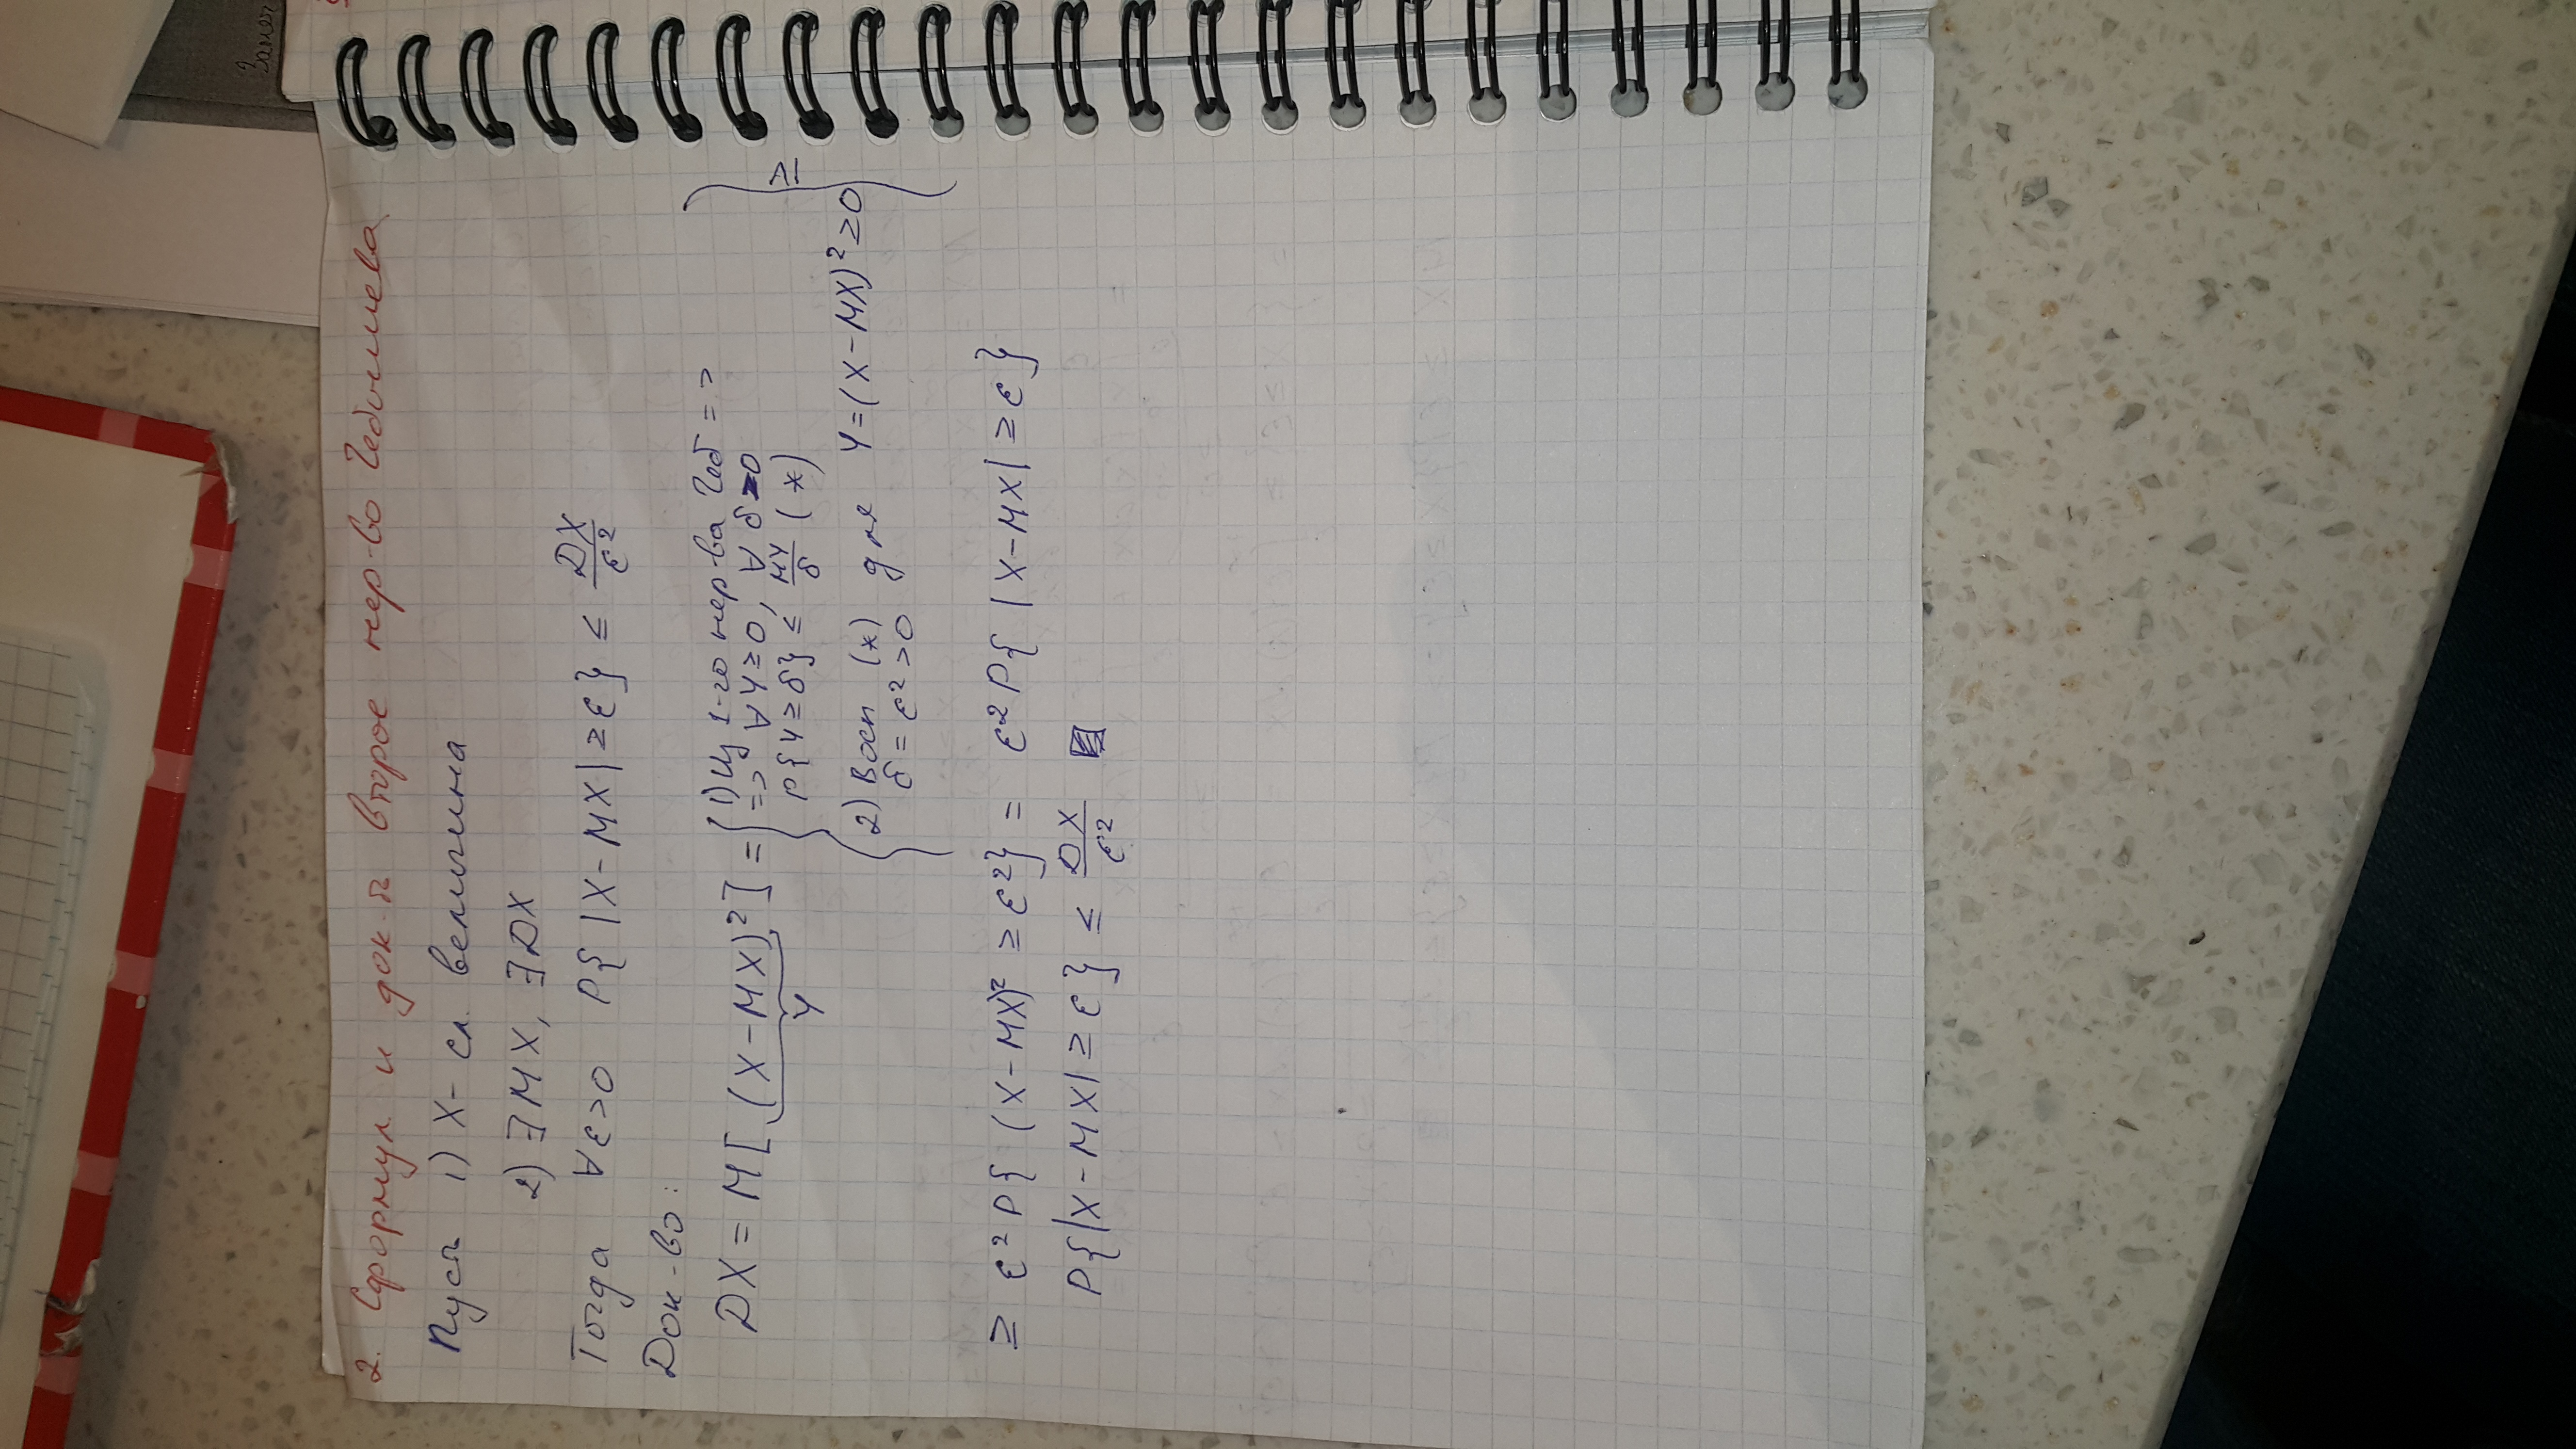 Замеч
2. Сформул. и док-ть второе нер-во Чебышева
Пусть 1) X - сл. величина
2) ∃ MX, ∃ DX
Тогда ∀ε>0 P{ |X-MX| ≥ε} ≤ DX/ε²
Док-во:
DX = M[ (X-MX)² ] = { 1) Из 1-го нер-ва Чеб =>
Y
=> ∀Y≥0, ∀ δ>0
P{Y≥δ} ≤ MY/δ (*)
2) Восп (*) для Y=(X-MX)²≥0 } ≥
δ = ε²>0
≥ ε²P{ (X-MX)² ≥ε²} = ε²P{ |X-MX| ≥ε}
P{|X-MX|≥ε} ≤ DX/ε²